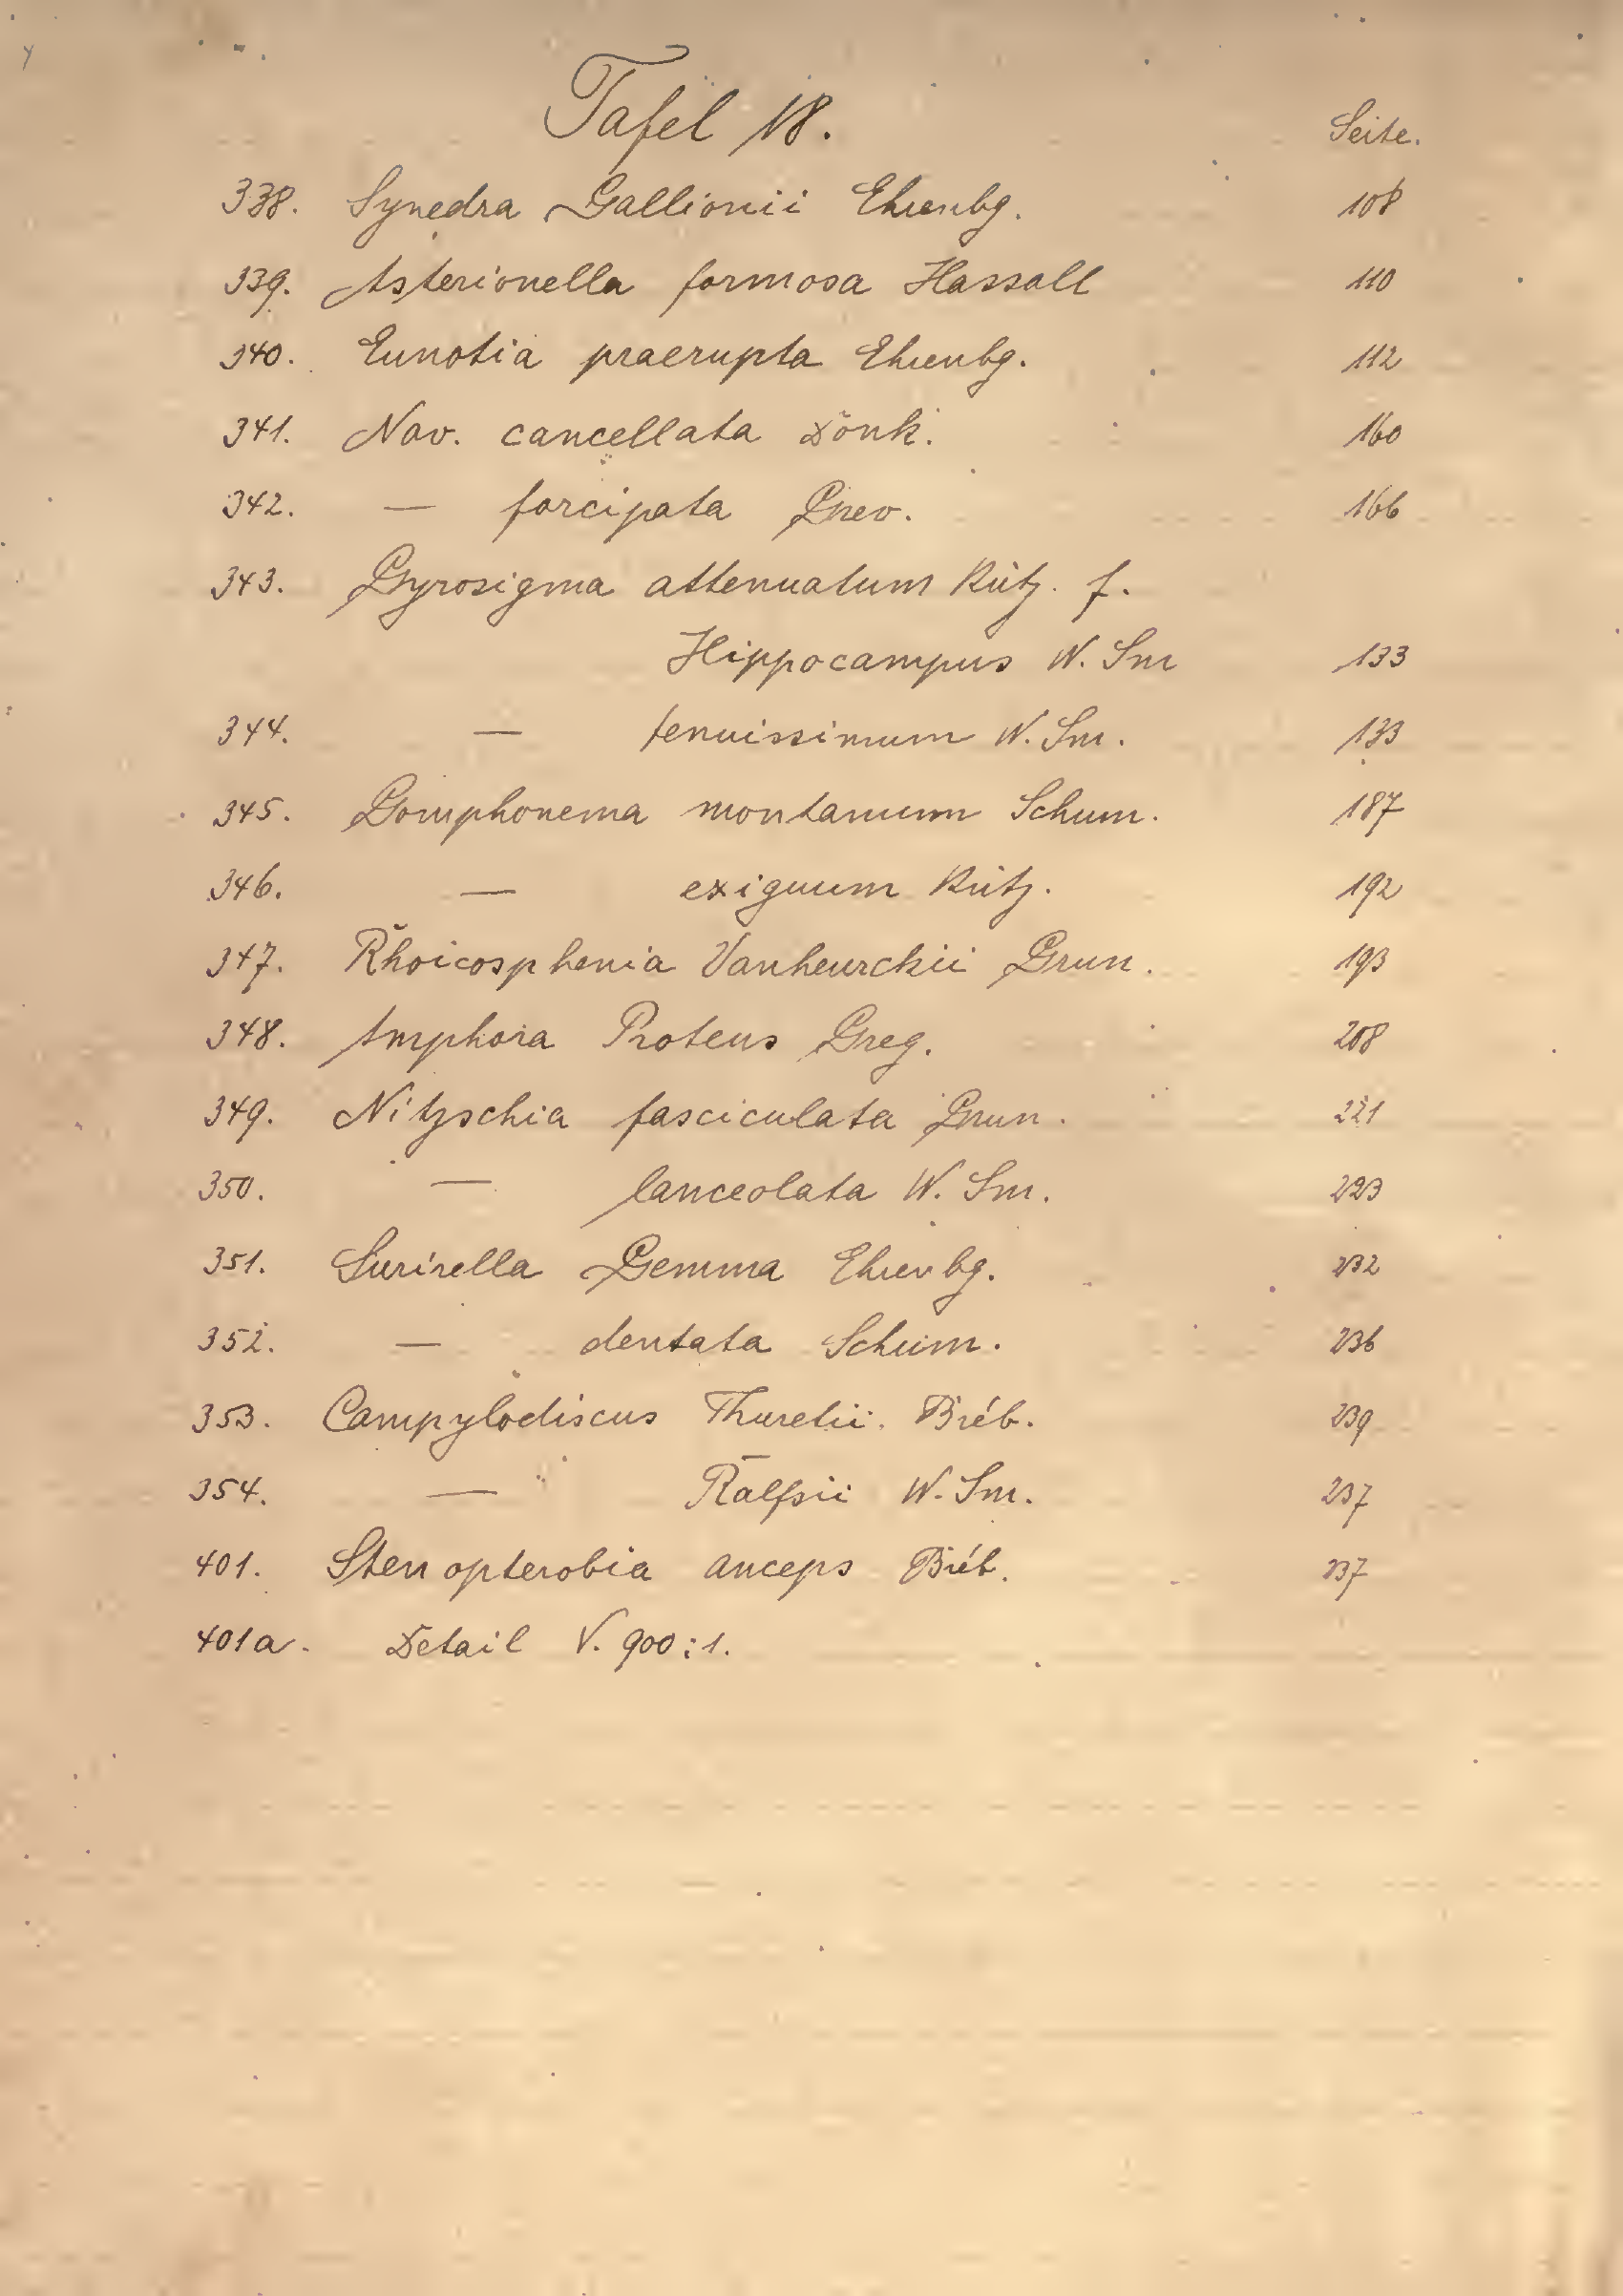 Tafel 18.
Seite.
338. Synedra Gallionii Ehrenbg. 108
339. Asterionella formosa Hassall 110
340. Eunotia praerupta Ehrenbg. 112
341. Nav. cancellata Donk. 160
342. — forcipata Grev. 166
343. Gyrosigma attenuatum Kütz. f.
Hippocampus W. Sm 133
344. — tenuissimum W. Sm. 133
345. Gomphonema montanum Schum. 187
346. — exiguum Kütz. 192
347. Rhoicosphenia Vanheurckii Grun. 193
348. Amphora Proteus Greg. 208
349. Nitzschia fasciculata Grun. 221
350. — lanceolata W. Sm. 223
351. Surirella Gemma Ehrenbg. 232
352. — dentata Schum. 236
353. Campylodiscus Thuretii. Bréb. 239
354. — Ralfsii W. Sm. 237
401. Stenopterobia anceps Bréb. 237
401a. Detail V. 900:1.